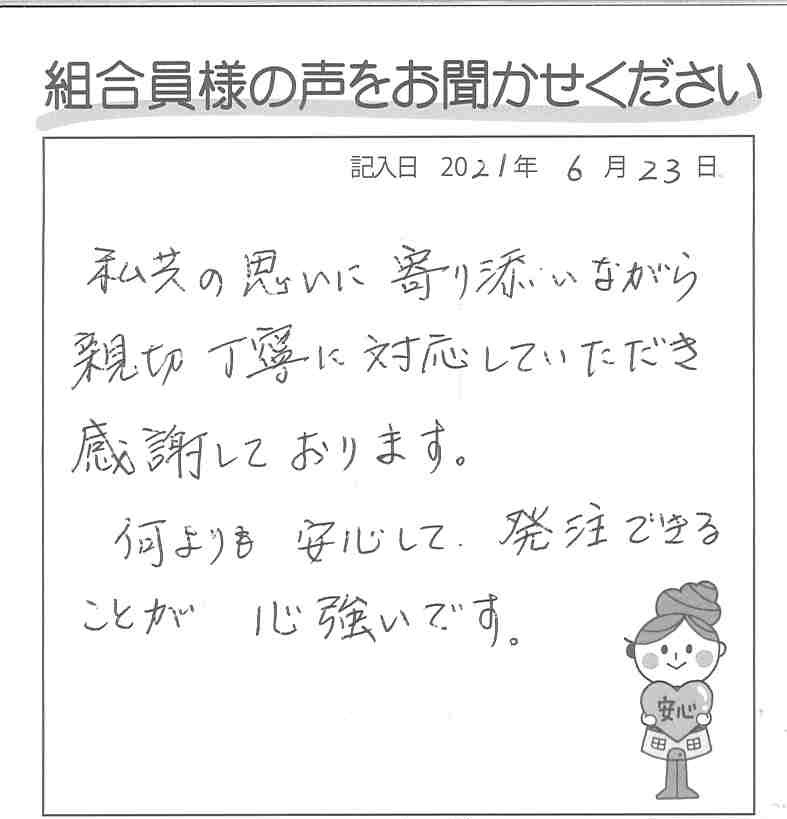 組合員様の声をお聞かせください
記入日 2021年 6月23日
私共の思いに寄り添いながら
親切丁寧に対応していただき
感謝しております。
何よりも 安心して 発注できる
ことが 心強いです。
安心